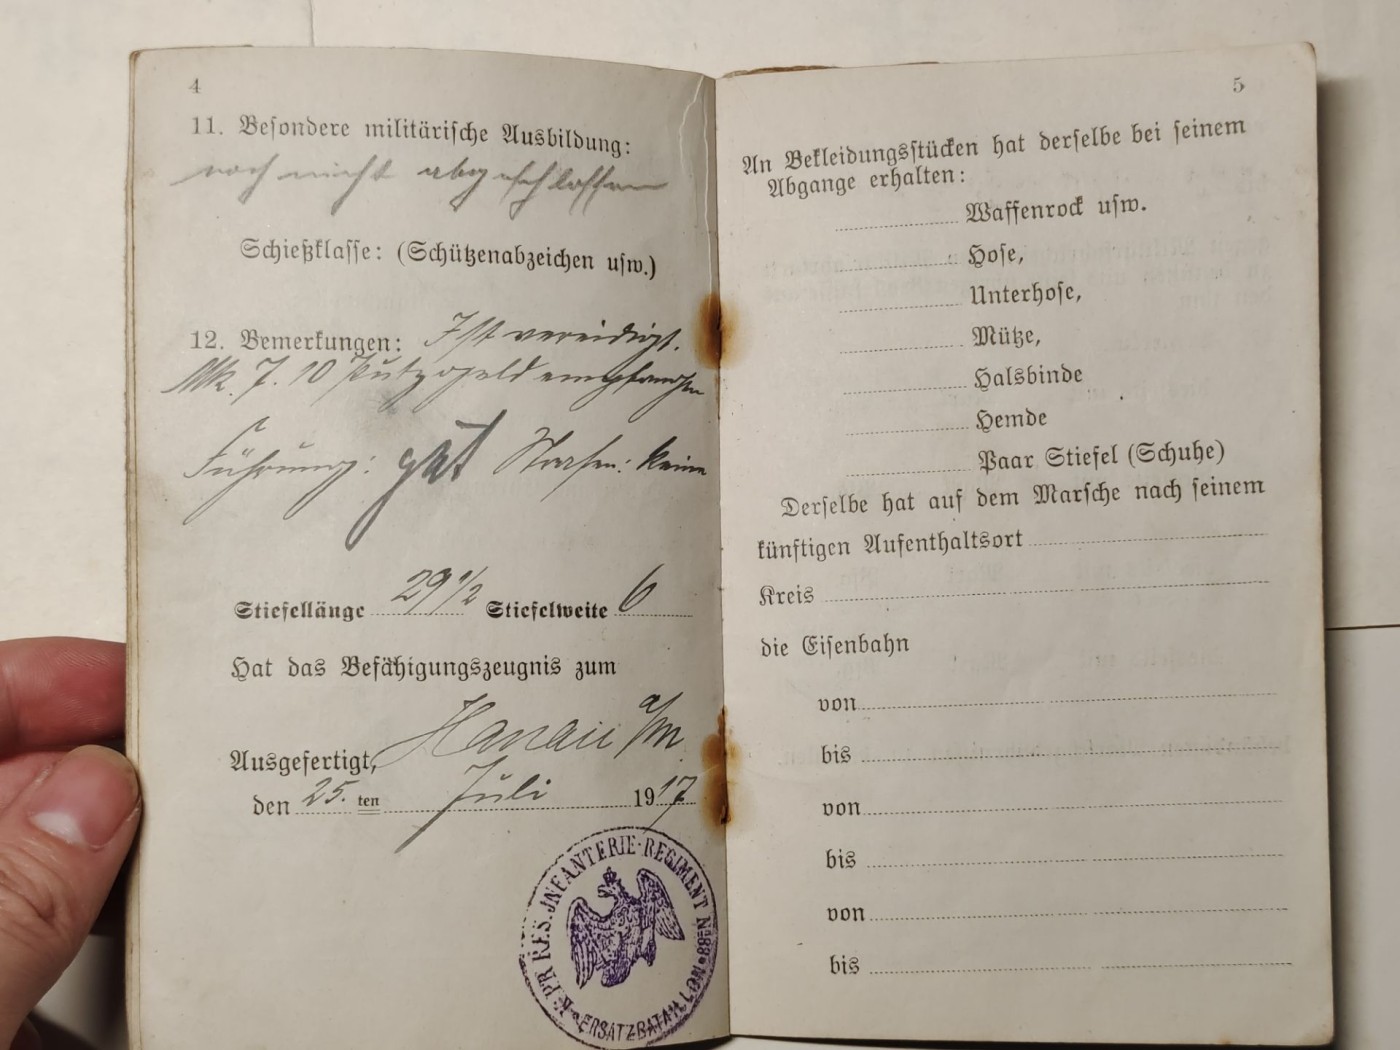 4
11. Besondere militärische Ausbildung:
noch nicht abgeschlossen
Schießklasse: (Schützenabzeichen usw.)
12. Bemerkungen: Ist vereidigt.
Mk. 7.10 Putzgeld empfangen
Führung: gut Strafen: keine
Stiefellänge 29 1/2 Stiefelweite 6
Hat das Befähigungszeugnis zum
Ausgefertigt, Hanau a/M
den 25. ten Juli 1917
K. PR. RES. INFANTERIE-REGIMENT No 88
ERSATZ-BATAILLON
5
An Bekleidungsstücken hat derselbe bei seinem
Abgange erhalten:
Waffenrock usw.
Hose,
Unterhose,
Mütze,
Halsbinde
Hemde
Paar Stiefel (Schuhe)
Derselbe hat auf dem Marsche nach seinem
künftigen Aufenthaltsort
Kreis
die Eisenbahn
von
bis
von
bis
von
bis